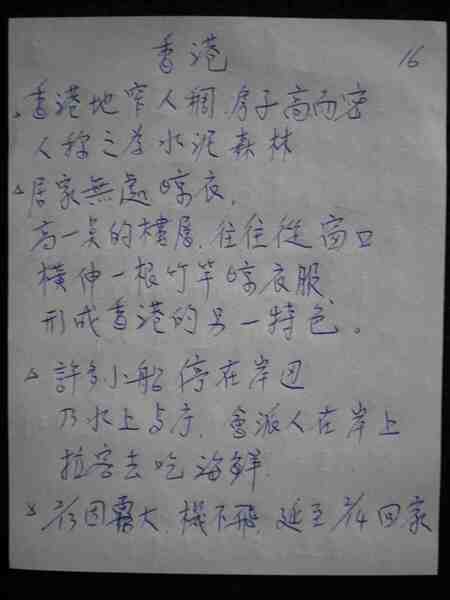 香港 16
△香港地窄人稠,房子高而密
人称之為水泥森林
△居家無處晾衣,
高一点的樓層,往往從窗口
橫伸一根竹竿晾衣服,
形成香港的另一特色。
△許多小船停在岸边
乃水上 会派人在岸上
拉客去吃海鮮.
△ 因霧大,機不飛,延至 回家